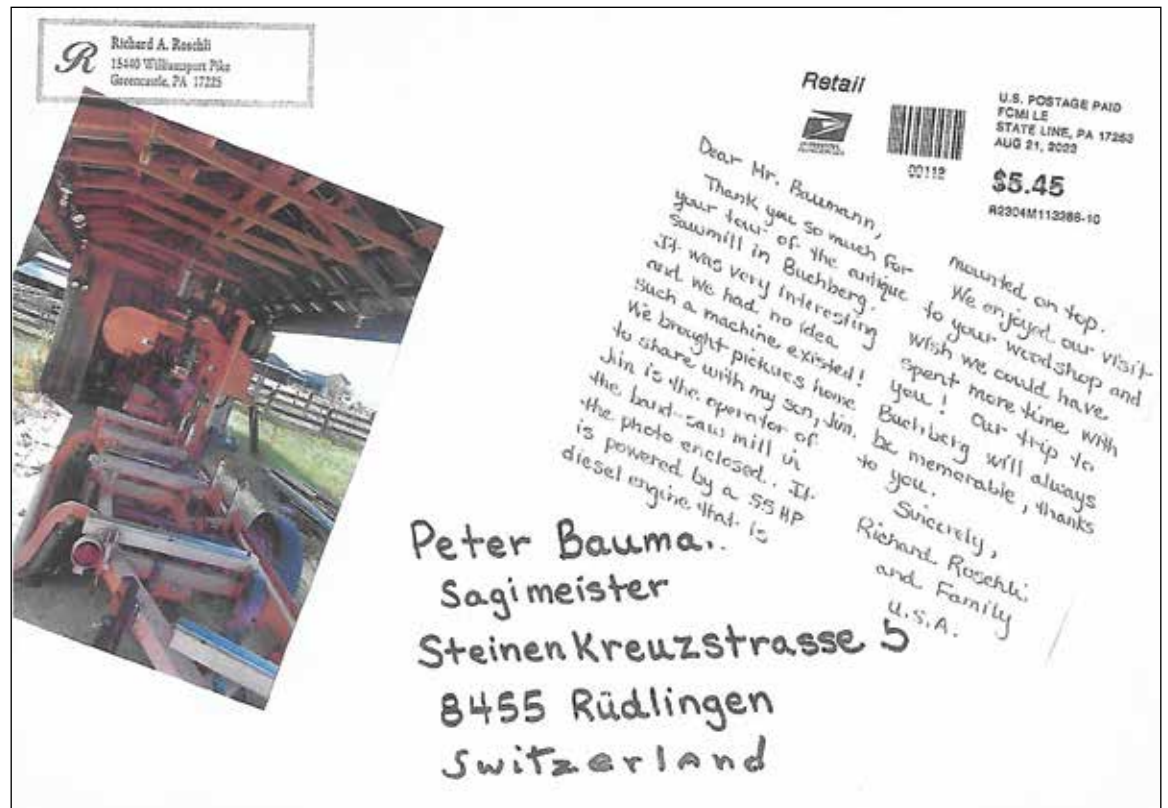 R
Richard A. Roschli
15440 Williamsport Pike
Greencastle, PA 17225
Retail
U.S. POSTAGE PAID
FCMI LE
STATE LINE, PA 17263
AUG 21, 2023
$5.45
R2304M113286-10
00112
Dear Mr. Baumann,
Thank you so much for
your tour of the antique
sawmill in Buchberg.
It was very interesting
and we had no idea
such a machine existed!
We brought pickues home
to share with my son, Jim.
Jim is the operator of
the band-saw mill in
the photo enclosed. It
is powered by a 55 HP
diesel engine that is
mounted on top.
We enjoyed our visit
to your woodshop and
wish we could have
spent more time with
you! Our trip to
Buchberg will always
be memorable, thanks
to you.
Sincerely,
Richard Roschli
and Family
U.S.A.
Peter Bauma
Sagimeister
Steinen Kreuzstrasse 5
8455 Rüdlingen
Switzerland